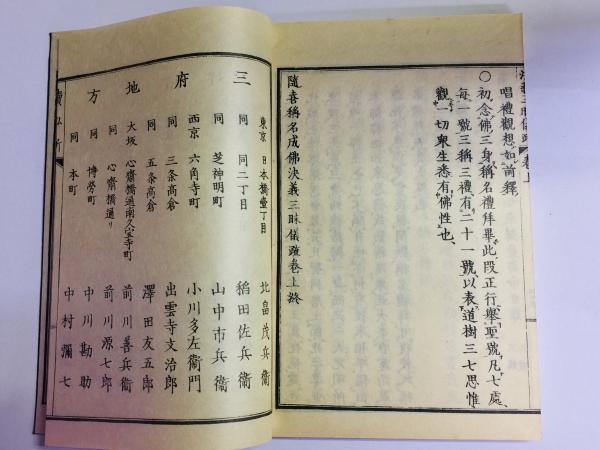 唱禮觀想如前釋
○初念佛三身稱名禮拜畢此段正行擧聖號凡七處、
每一號三稱三禮有二十一號以表道樹三七思惟
觀一切衆生悉有佛性也、
隨喜稱名成佛決義三昧儀䟽卷上終
三府地方
東京 日本橋壹丁目 北畠茂兵衞
同 同二丁目 稻田佐兵衞
同 芝神明町 山中市兵衞
西京 六角寺町 小川多左衞門
同 三条高倉 出雲寺文治郎
同 五条高倉 澤田友五郎
大坂 心齋橋通南久宝寺町 前川善兵衞
同 心齋橋通り 前川源七郎
同 博勞町 中川勘助
同 本町 中村彌七